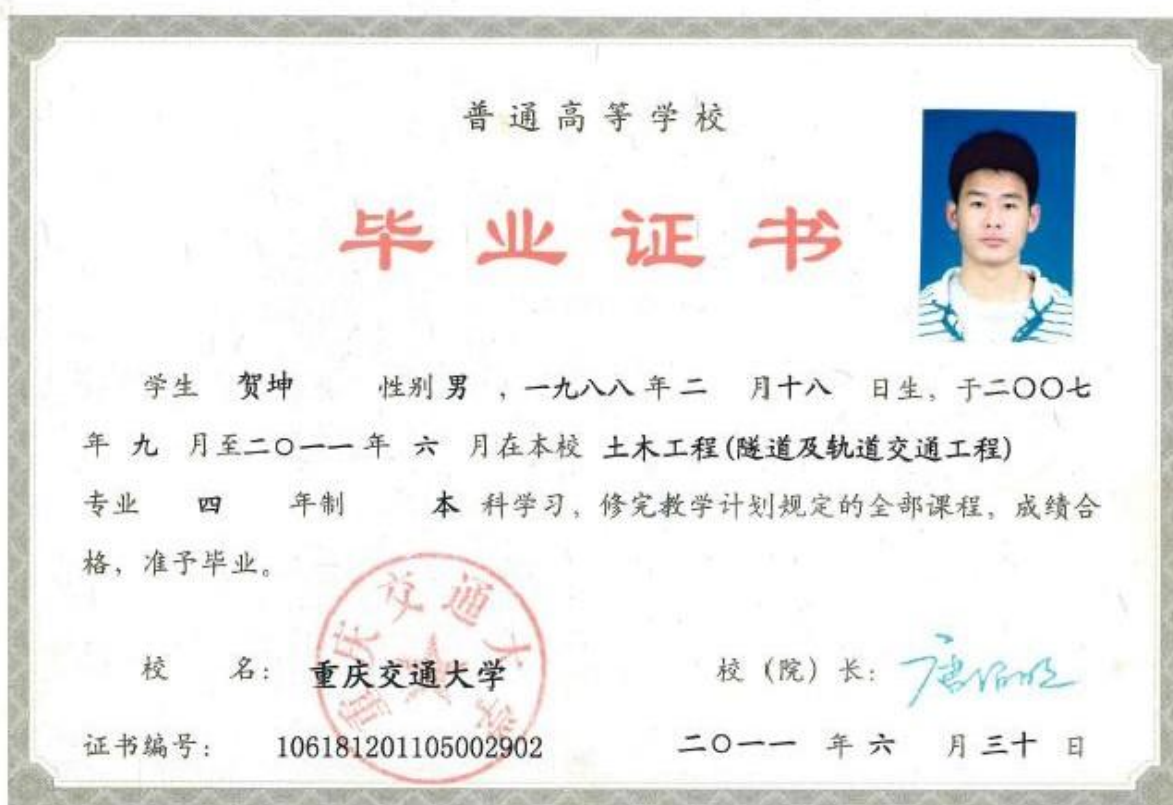 普通高等学校
毕业证书
学生 贺坤 性别 男 ，一九八八 年 二 月 十八 日生，于 二〇〇七
年 九 月至 二〇一一 年 六 月在本校 土木工程(隧道及轨道交通工程)
专业 四 年制 本 科学习，修完教学计划规定的全部课程，成绩合
格，准予毕业。
重庆交通大学
校 名： 重庆交通大学 校（院）长： 唐伯明
证书编号： 106181201105002902 二〇一一 年 六 月 三十 日